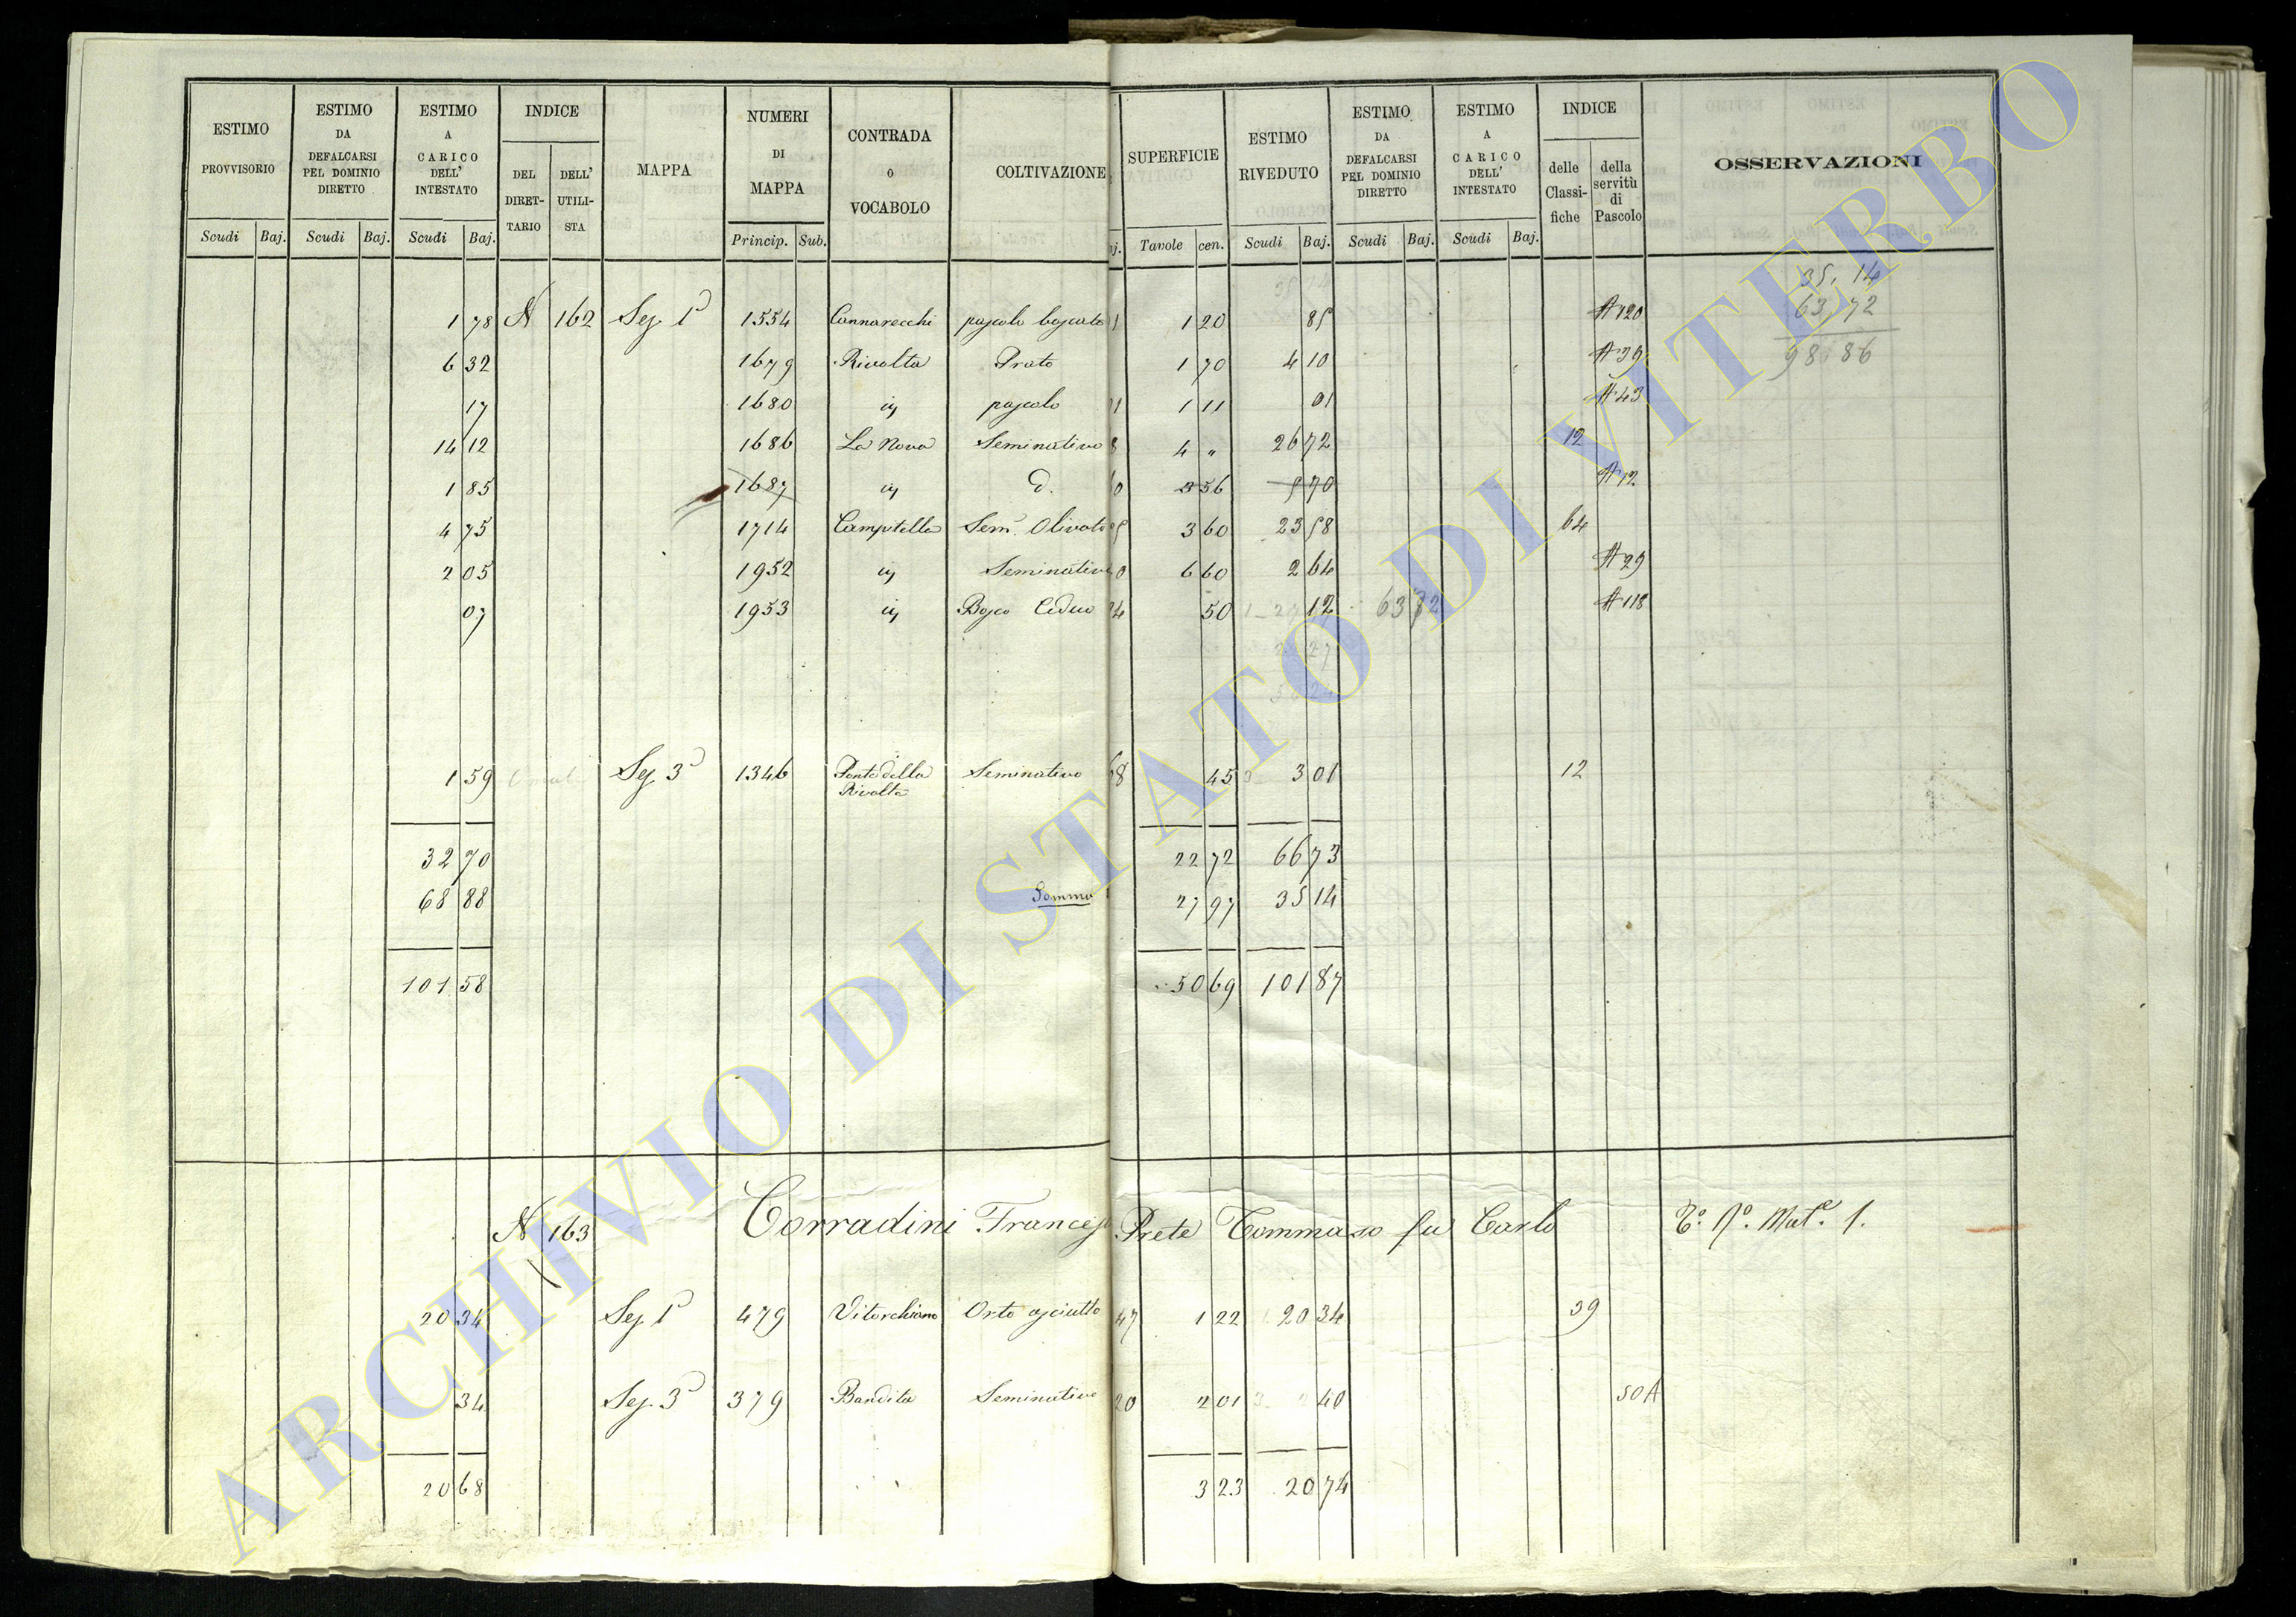 ESTIMO PROVVISORIO Scudi Baj.
ESTIMO DA DEFALCARSI PEL DOMINIO DIRETTO Scudi Baj.
ESTIMO A CARICO DELL' INTESTATO Scudi Baj.
INDICE DEL DIRET-TARIO DELL' UTILI-STA
MAPPA
NUMERI DI MAPPA Princip. Sub.
CONTRADA O VOCABOLO
COLTIVAZIONE
aj.
SUPERFICIE Tavole cen.
ESTIMO RIVEDUTO Scudi Baj.
ESTIMO DA DEFALCARSI PEL DOMINIO DIRETTO Scudi Baj.
ESTIMO A CARICO DELL' INTESTATO Scudi Baj.
INDICE delle Classi-fiche della servitù di Pascolo
OSSERVAZIONI
35,14
63,72
98 86
1 78 N 162 Sez. 1ª 1554 Cannarecchi pascolo boscato 1 20 85 A 120
6 32 1679 Rivolta Prato 1 70 4 10 A 39
17 1680 id pascolo 1 11 01 A 43
14 12 1686 La Nova Seminativo 8 4 " 26 72 12
1 85 1687 id d. 0 3 56 5 70 A 12
4 75 1714 Campitella Sem. Olivato 3 60 23 58 64
2 05 1952 id Seminativo 0 6 60 2 64 A 29
07 1953 id Bosco Ceduo 24 50 12 63 72 A 118
1 59 Sez. 3ª 1346 Ponte della Rivolta Seminativo 68 45 3 01 12
32 70 22 72 66 73
68 88 Somma 27 97 35 14
101 58 50 69 101 87
N 163 Corradini Francesco Prete Tommaso fu Carlo Tº. Nº. Matª. 1.
20 34 Sez. 1ª 479 Vitorchiano Orto asciutto 47 1 22 20 34 39
34 Sez. 3ª 379 Bandita Seminativo 20 2 01 40 50 A
20 68 3 23 20 74
ARCHIVIO DI STATO DI VITERBO